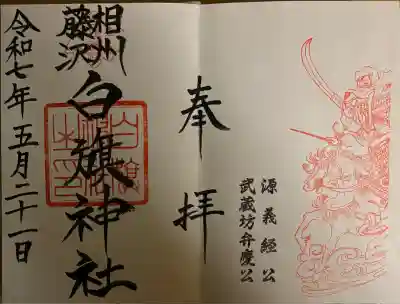 奉拝
源義経公
武蔵坊弁慶公
相州
藤沢
白旗神社
令和七年五月二十一日